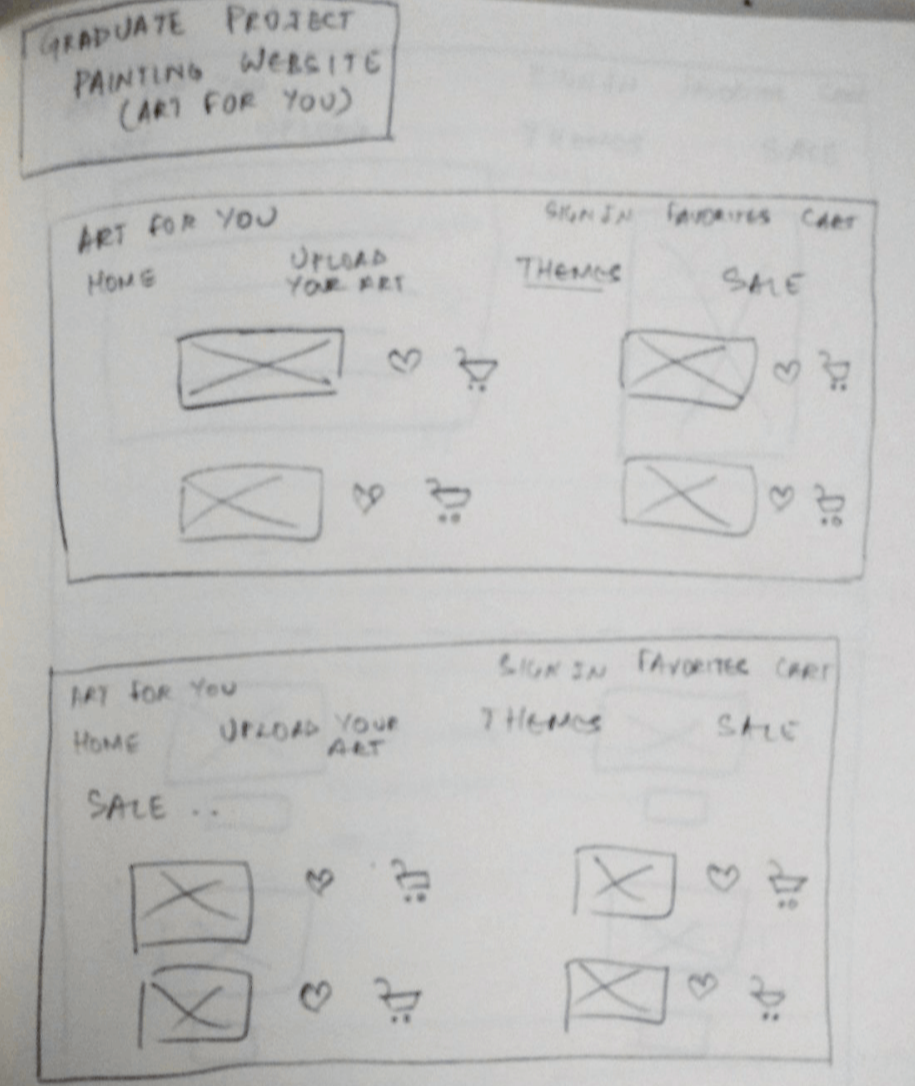 GRADUATE PROJECT
PAINTING WEBSITE
(ART FOR YOU)
ART FOR YOU SIGN IN FAVORITES CART
HOME UPLOAD YOUR ART THEMES SALE
ART FOR YOU SIGN IN FAVORITES CART
HOME UPLOAD YOUR ART THEMES SALE
SALE ..